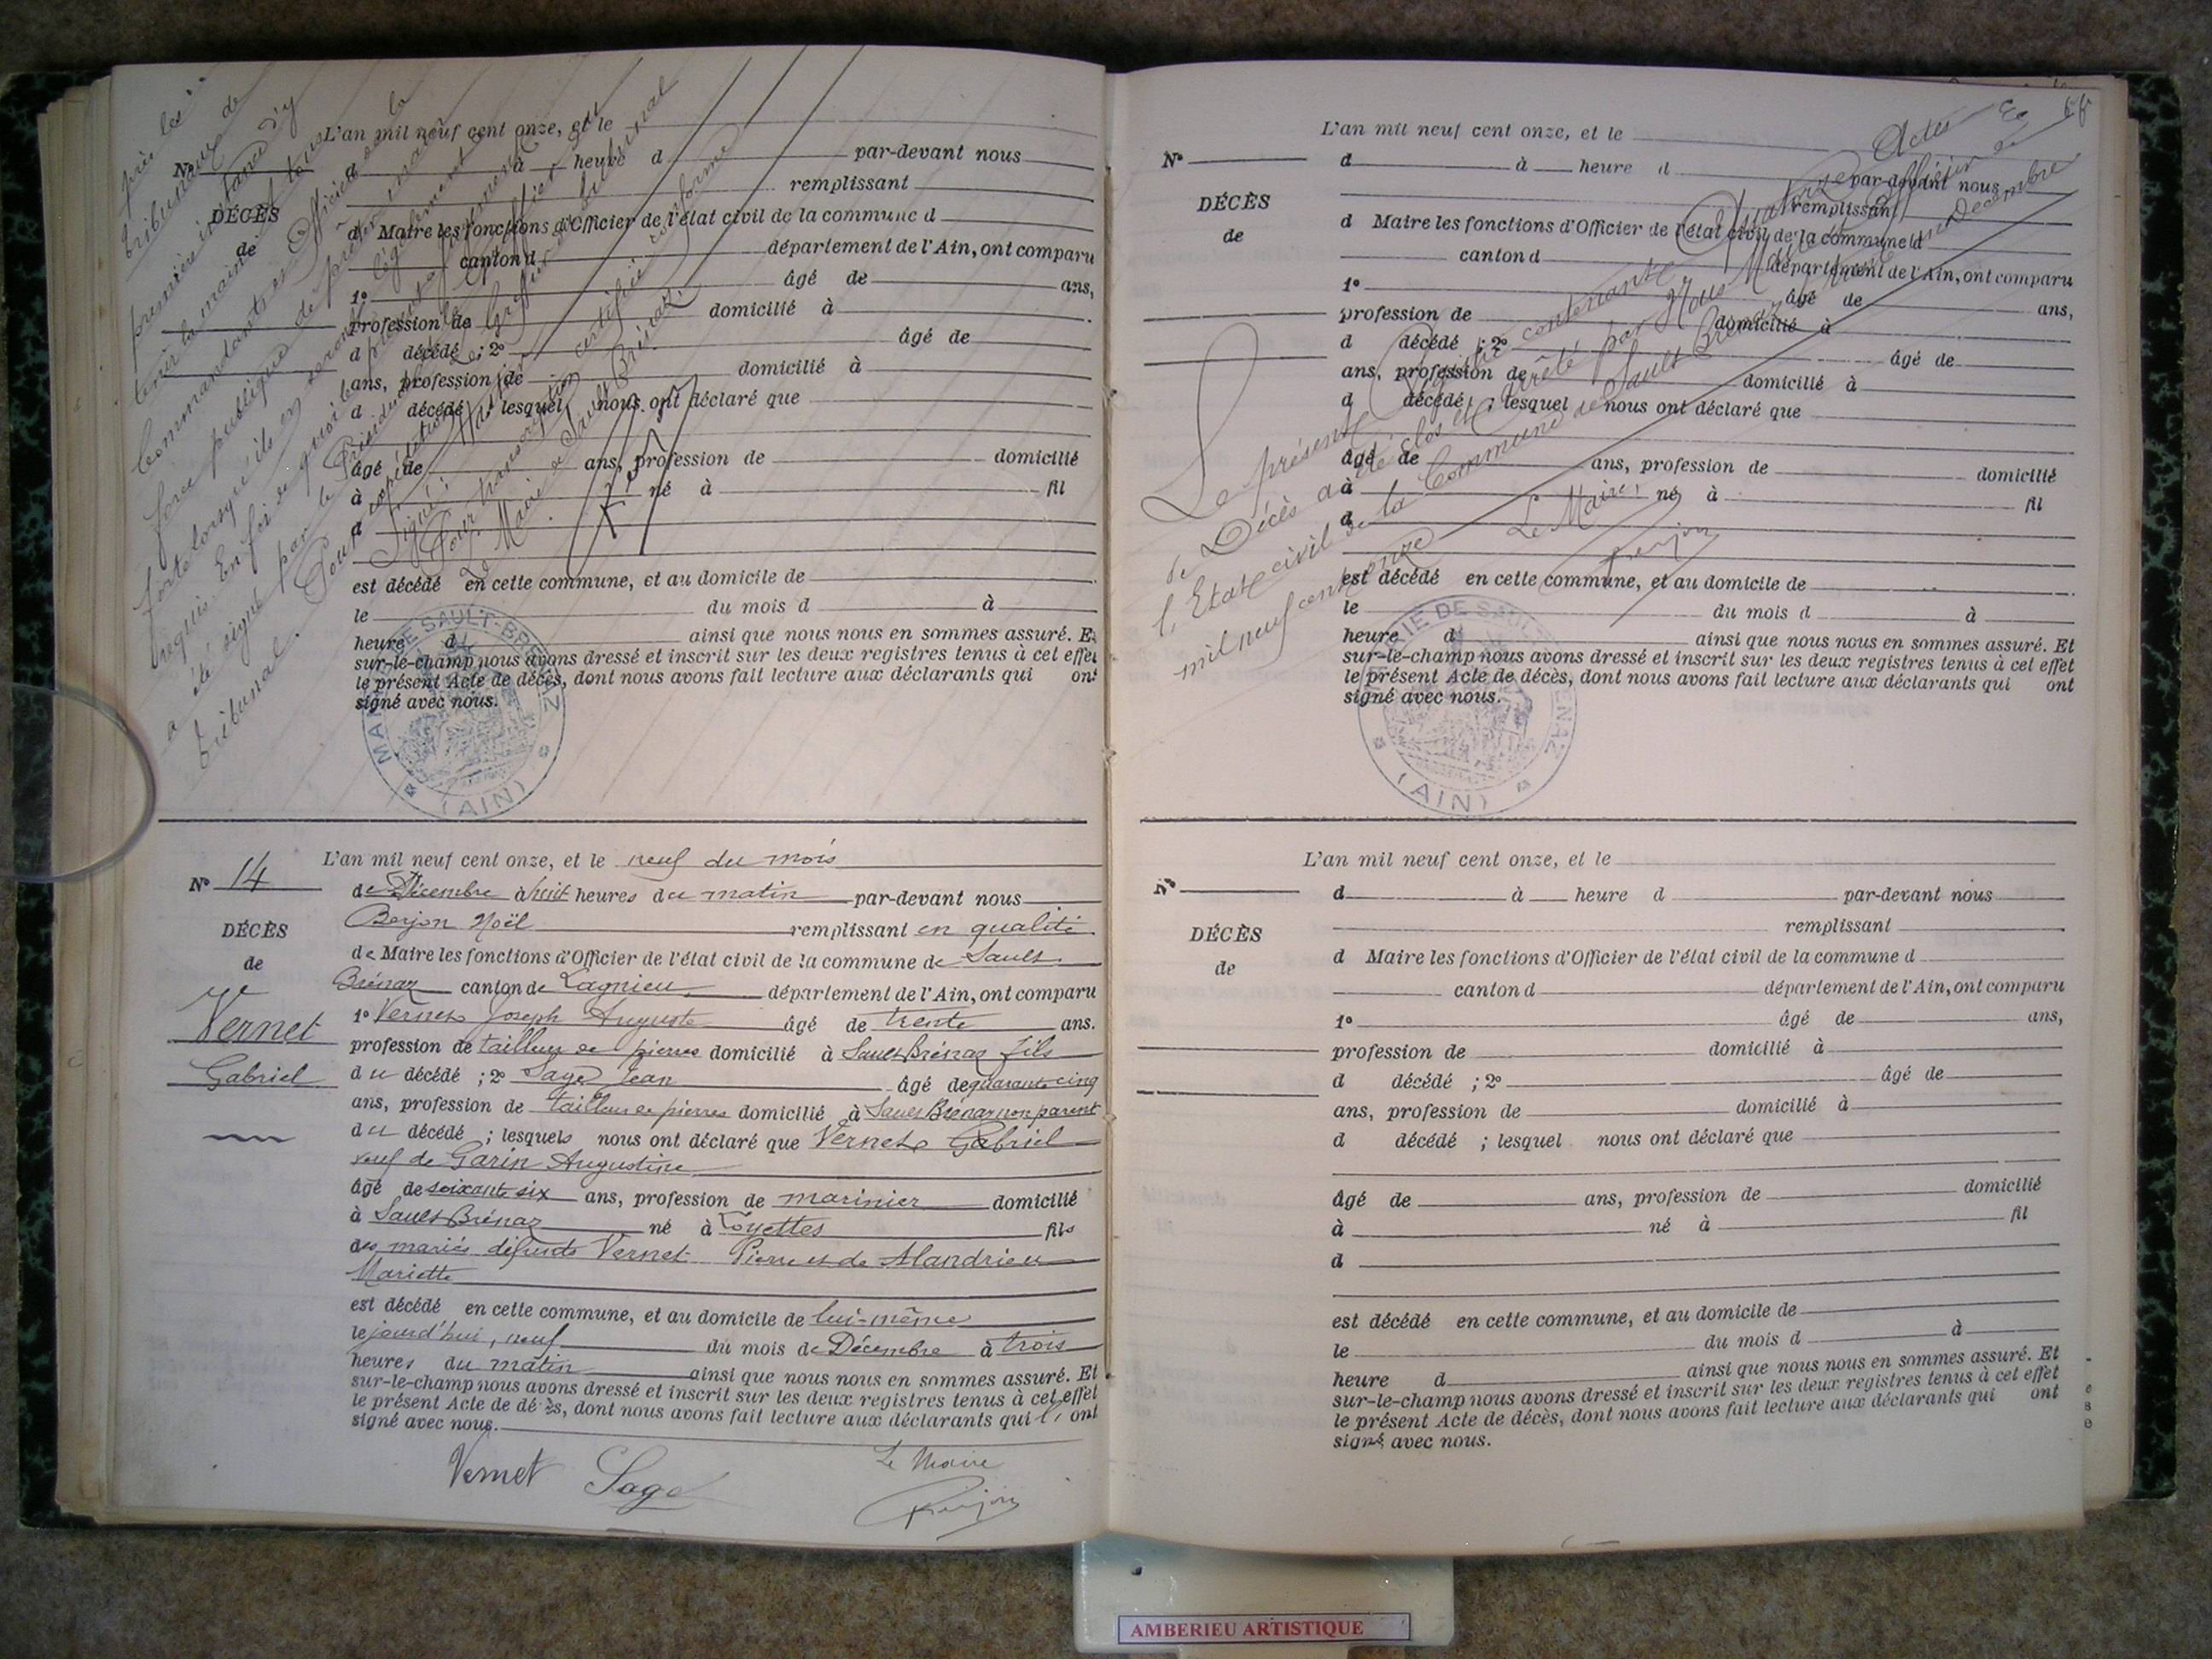 L'an mil neuf cent onze, et le
N°
d à heure d par-devant nous
remplissant
DÉCÈS
d Maire les fonctions d'Officier de l'état civil de la commune d
de
canton d département de l'Ain, ont comparu
1° âgé de ans,
profession de domicilié à
d décédé ; 2° âgé de
ans, profession de domicilié à
d décédé ; lesquel nous ont déclaré que
âgé de ans, profession de domicilié
à né à fil
d
est décédé en cette commune, et au domicile de
le du mois d à
heure d ainsi que nous nous en sommes assuré. Et
sur-le-champ nous avons dressé et inscrit sur les deux registres tenus à cet effet
le présent Acte de décès, dont nous avons fait lecture aux déclarants qui ont
signé avec nous.
près les
tribunaux de
première instance d'y
tenir la main, à tous
Commandants et Officiers de la
force publique de prêter main
forte lorsqu'ils en seront légalement
requis. En foi de quoi le présent
a été signé par le Président
tribunal.
Pour expédition
Signé:
Pour transcription certifiée conforme
Le Maire de Sault Brénaz
MAIRIE DE SAULT-BRÉNAZ
(AIN)
L'an mil neuf cent onze, et le neuf du mois
N° 14
de Décembre à huit heures du matin par-devant nous
Berjon Noël remplissant en qualité
DÉCÈS
de Maire les fonctions d'Officier de l'état civil de la commune de Sault
de
Brénaz canton de Lagnieu département de l'Ain, ont comparu
Vernet
1° Vernet Joseph Auguste âgé de trente ans.
profession de tailleur de pierres domicilié à Sault Brénaz fils
Gabriel
du décédé ; 2° Sage Jean âgé de quarante cinq
ans, profession de tailleur de pierres domicilié à Sault Brénaz non parent
du décédé ; lesquels nous ont déclaré que Vernet Gabriel
veuf de Garin Augustine
âgé de soixante six ans, profession de marinier domicilié
à Sault Brénaz né à Loyettes fils
des mariés défunts Vernet Pierre et de Mandrieu
Mariette
est décédé en cette commune, et au domicile de lui-même
le jourd'hui, neuf du mois de Décembre à trois
heures du matin ainsi que nous nous en sommes assuré. Et
sur-le-champ nous avons dressé et inscrit sur les deux registres tenus à cet effet
le présent Acte de décès, dont nous avons fait lecture aux déclarants qui l' ont
signé avec nous.
Vernet Sage Le Maire
Berjon
L'an mil neuf cent onze, et le
N°
d à heure d par-devant nous
remplissant
DÉCÈS
d Maire les fonctions d'Officier de l'état civil de la commune d
de
canton d département de l'Ain, ont comparu
1° âgé de ans,
profession de domicilié à
d décédé ; 2° âgé de
ans, profession de domicilié à
d décédé ; lesquel nous ont déclaré que
âgé de ans, profession de domicilié
à né à fil
d
est décédé en cette commune, et au domicile de
le du mois d à
heure d ainsi que nous nous en sommes assuré. Et
sur-le-champ nous avons dressé et inscrit sur les deux registres tenus à cet effet
le présent Acte de décès, dont nous avons fait lecture aux déclarants qui ont
signé avec nous.
Le présent Registre contenant Quatorze Actes
de Décès a été clos et arrêté par Nous Maire Officier de
l'Etat civil de la Commune de Sault Brénaz décembre
mil neuf cent onze
Le Maire,
Berjon
MAIRIE DE SAULT-BRÉNAZ
(AIN)
L'an mil neuf cent onze, et le
N°
d à heure d par-devant nous
remplissant
DÉCÈS
d Maire les fonctions d'Officier de l'état civil de la commune d
de
canton d département de l'Ain, ont comparu
1° âgé de ans,
profession de domicilié à
d décédé ; 2° âgé de
ans, profession de domicilié à
d décédé ; lesquel nous ont déclaré que
âgé de ans, profession de domicilié
à né à fil
d
est décédé en cette commune, et au domicile de
le du mois d à
heure d ainsi que nous nous en sommes assuré. Et
sur-le-champ nous avons dressé et inscrit sur les deux registres tenus à cet effet
le présent Acte de décès, dont nous avons fait lecture aux déclarants qui ont
signé avec nous.
AMBERIEU ARTISTIQUE